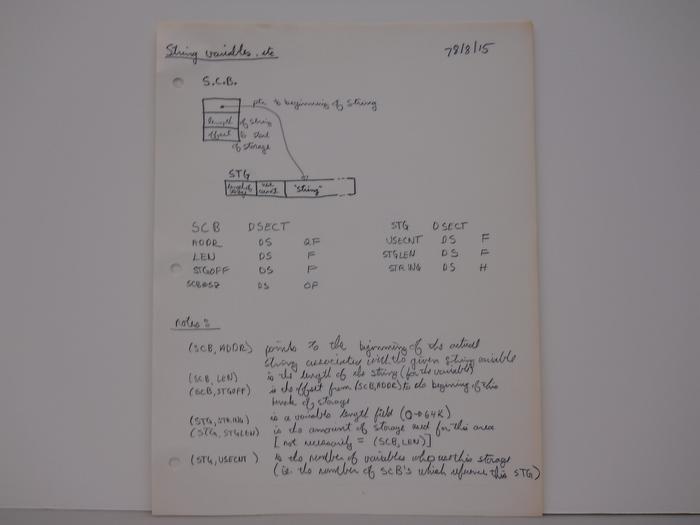 String variables, etc
78/8/15
S.C.B.
ptr to beginning of string
length of string
offset to start
of storage
STG
length of use "string"
count
SCB DSECT
ADDR DS 0F
LEN DS F
STGOFF DS F
SCB@SZ DS 0F
STG DSECT
USECNT DS F
STGLEN DS F
STRING DS H
notes:
(SCB, ADDR) points to the beginning of the actual
string associated with the given string variable
(SCB, LEN) is the length of the string (for the variable)
(SCB, STGOFF) is the offset from (SCB, ADDR) to the begining of this
of storage
(STG, STRING) is a variable length field (0→64K)
(STG, STGLEN) is the amount of storage used for this area
[not necessarily = (SCB, LEN)]
(STG, USECNT) is the number of variables who use this storage
(i.e. the number of SCB's which reference this STG)